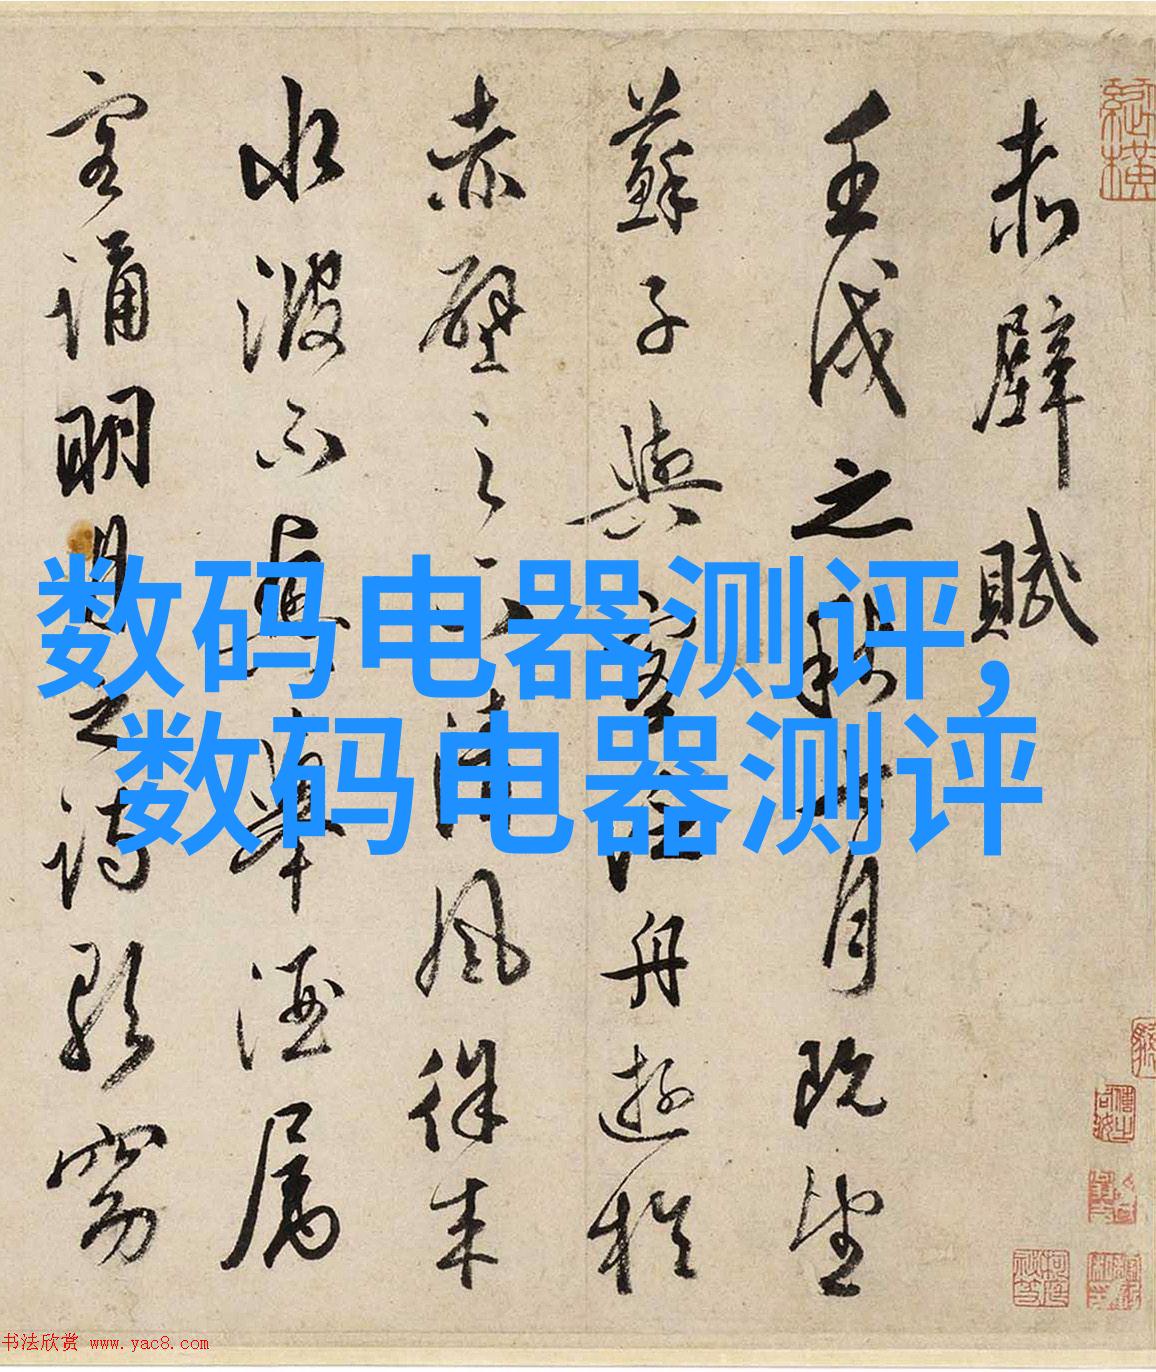 赤壁賦
壬戌之秋七月既望
蘇子與客泛舟遊於
赤壁之下清風徐來
水波不興舉酒屬
客誦明月之詩歌窈
数码电器测评,
数码电器测评
书法欣赏 www.yac8.com